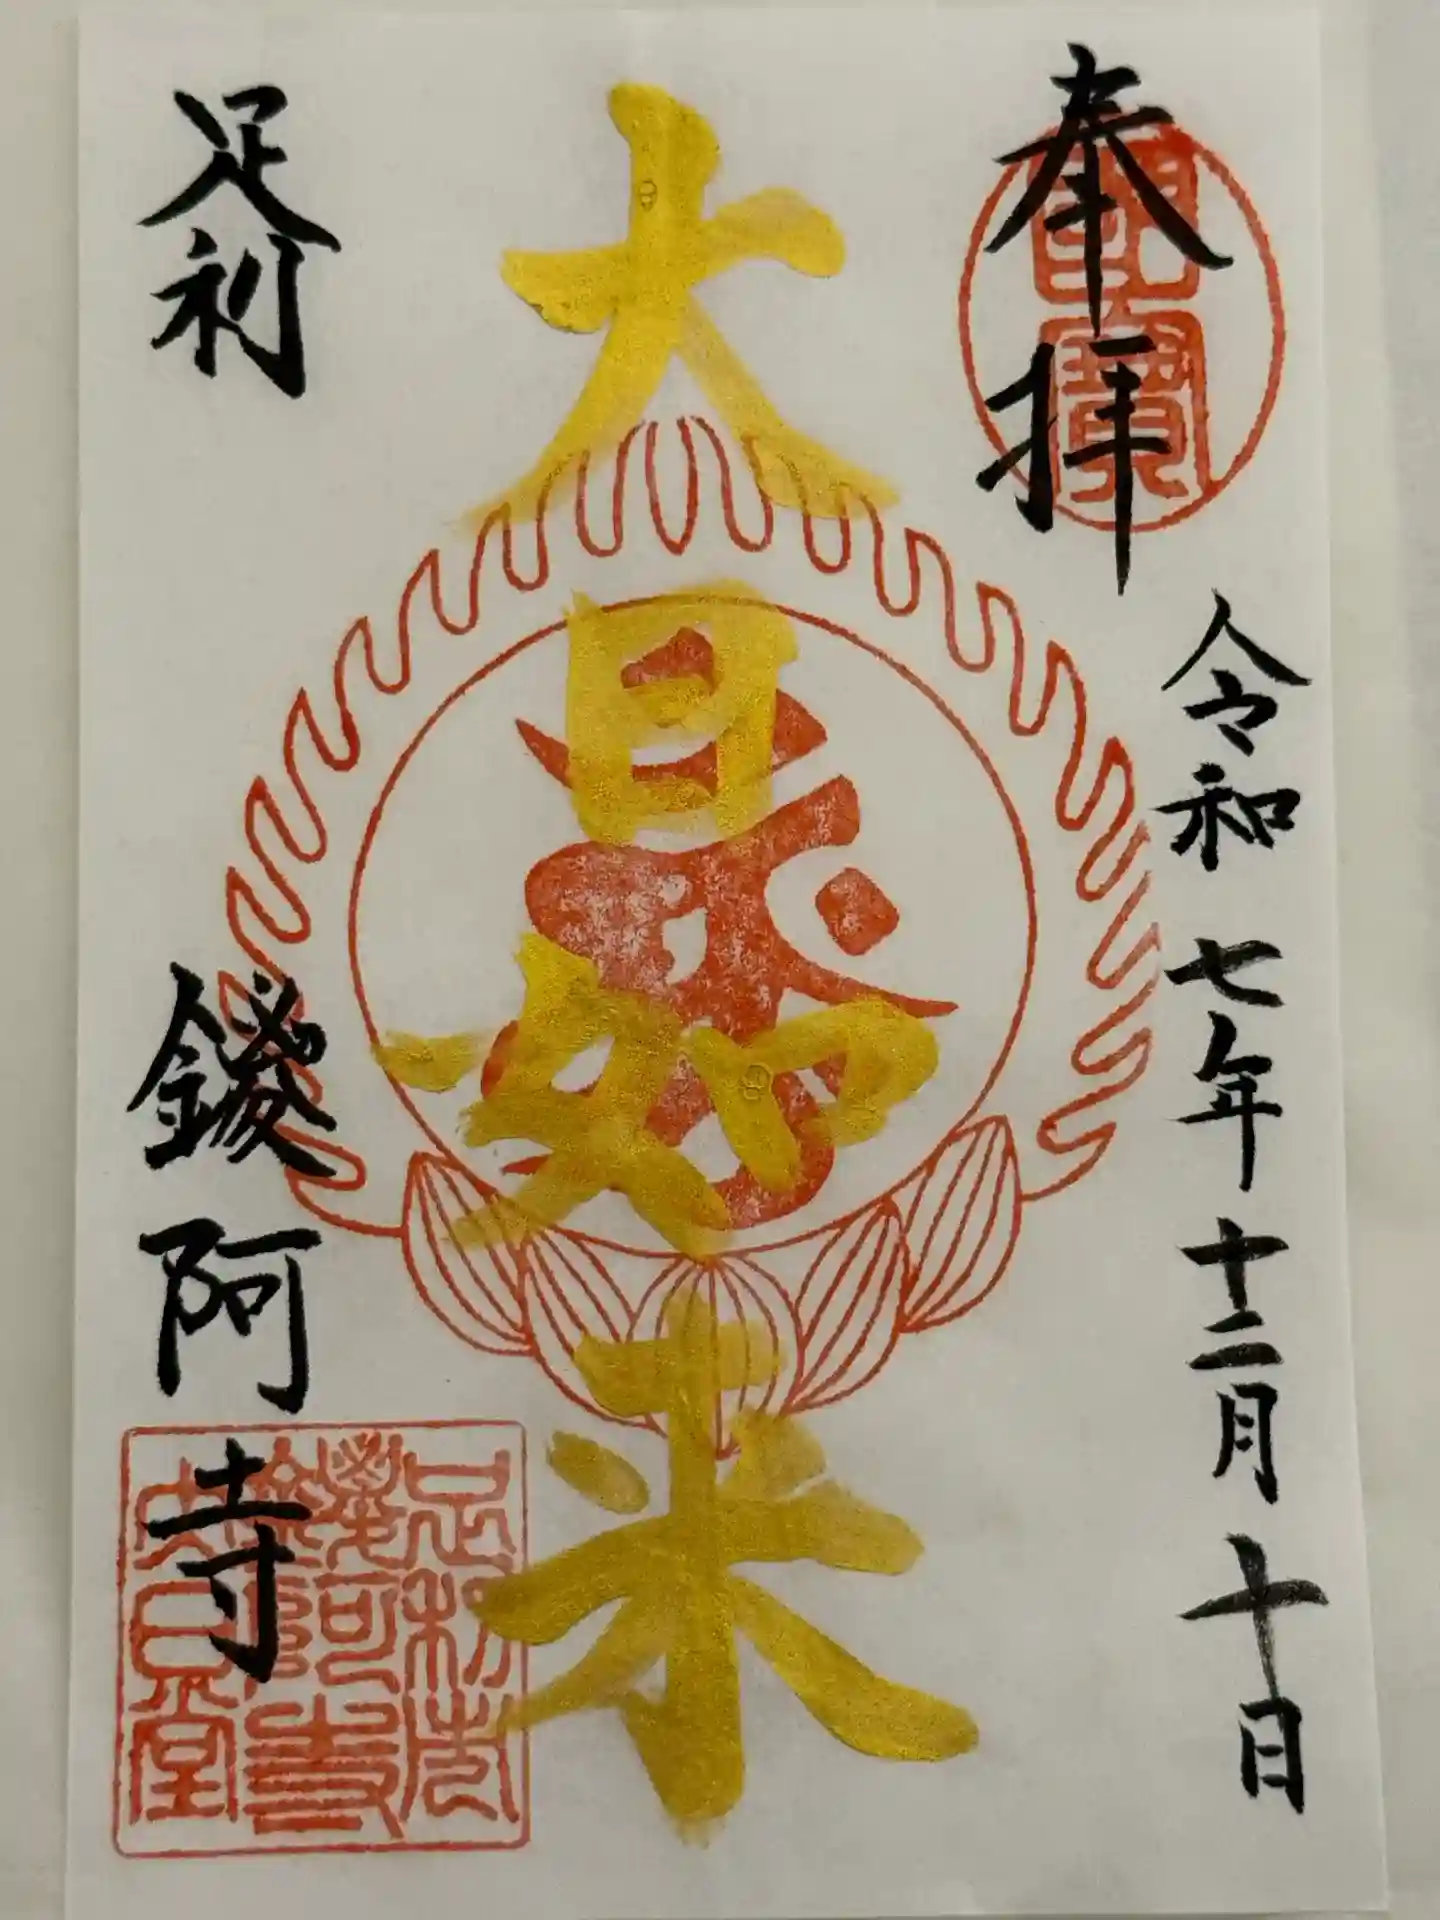 奉拝
令和七年十二月十日
大日如来
足利
鑁阿寺
足利市
鑁阿寺
大日堂